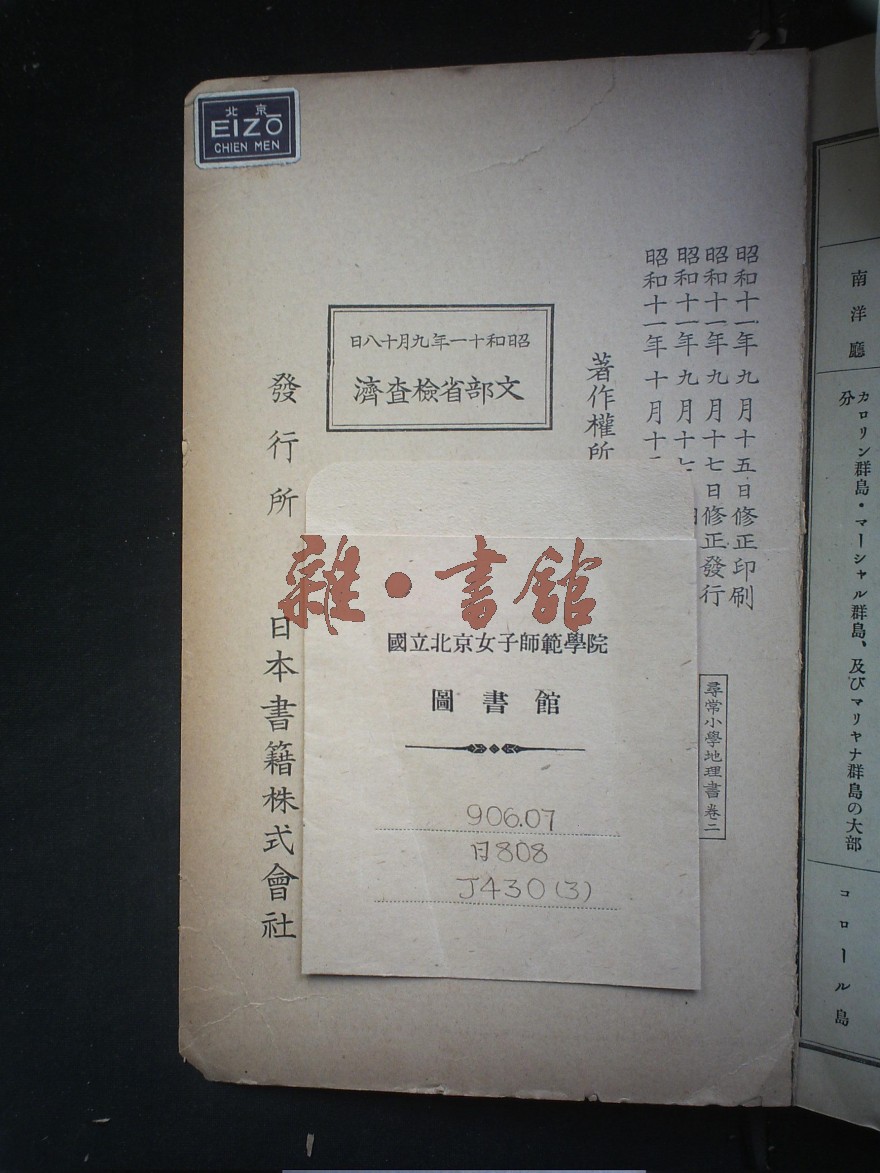 北京
EIZŌ
CHIEN MEN
昭和十一年九月十五日修正印刷
昭和十一年九月十七日修正發行
昭和十一年九月十七
昭和十一年十月十
著作權所
日八十月九年一十和昭
濟查檢省部文
發行所 日本書籍株式會社
尋常小學地理書卷二
雜·書館
國立北京女子師範學院
圖書館
906.07
日808
J430(3)
南洋廳
カロリン群島・マーシャル群島、及びマリヤナ群島の大部
分
コロール島